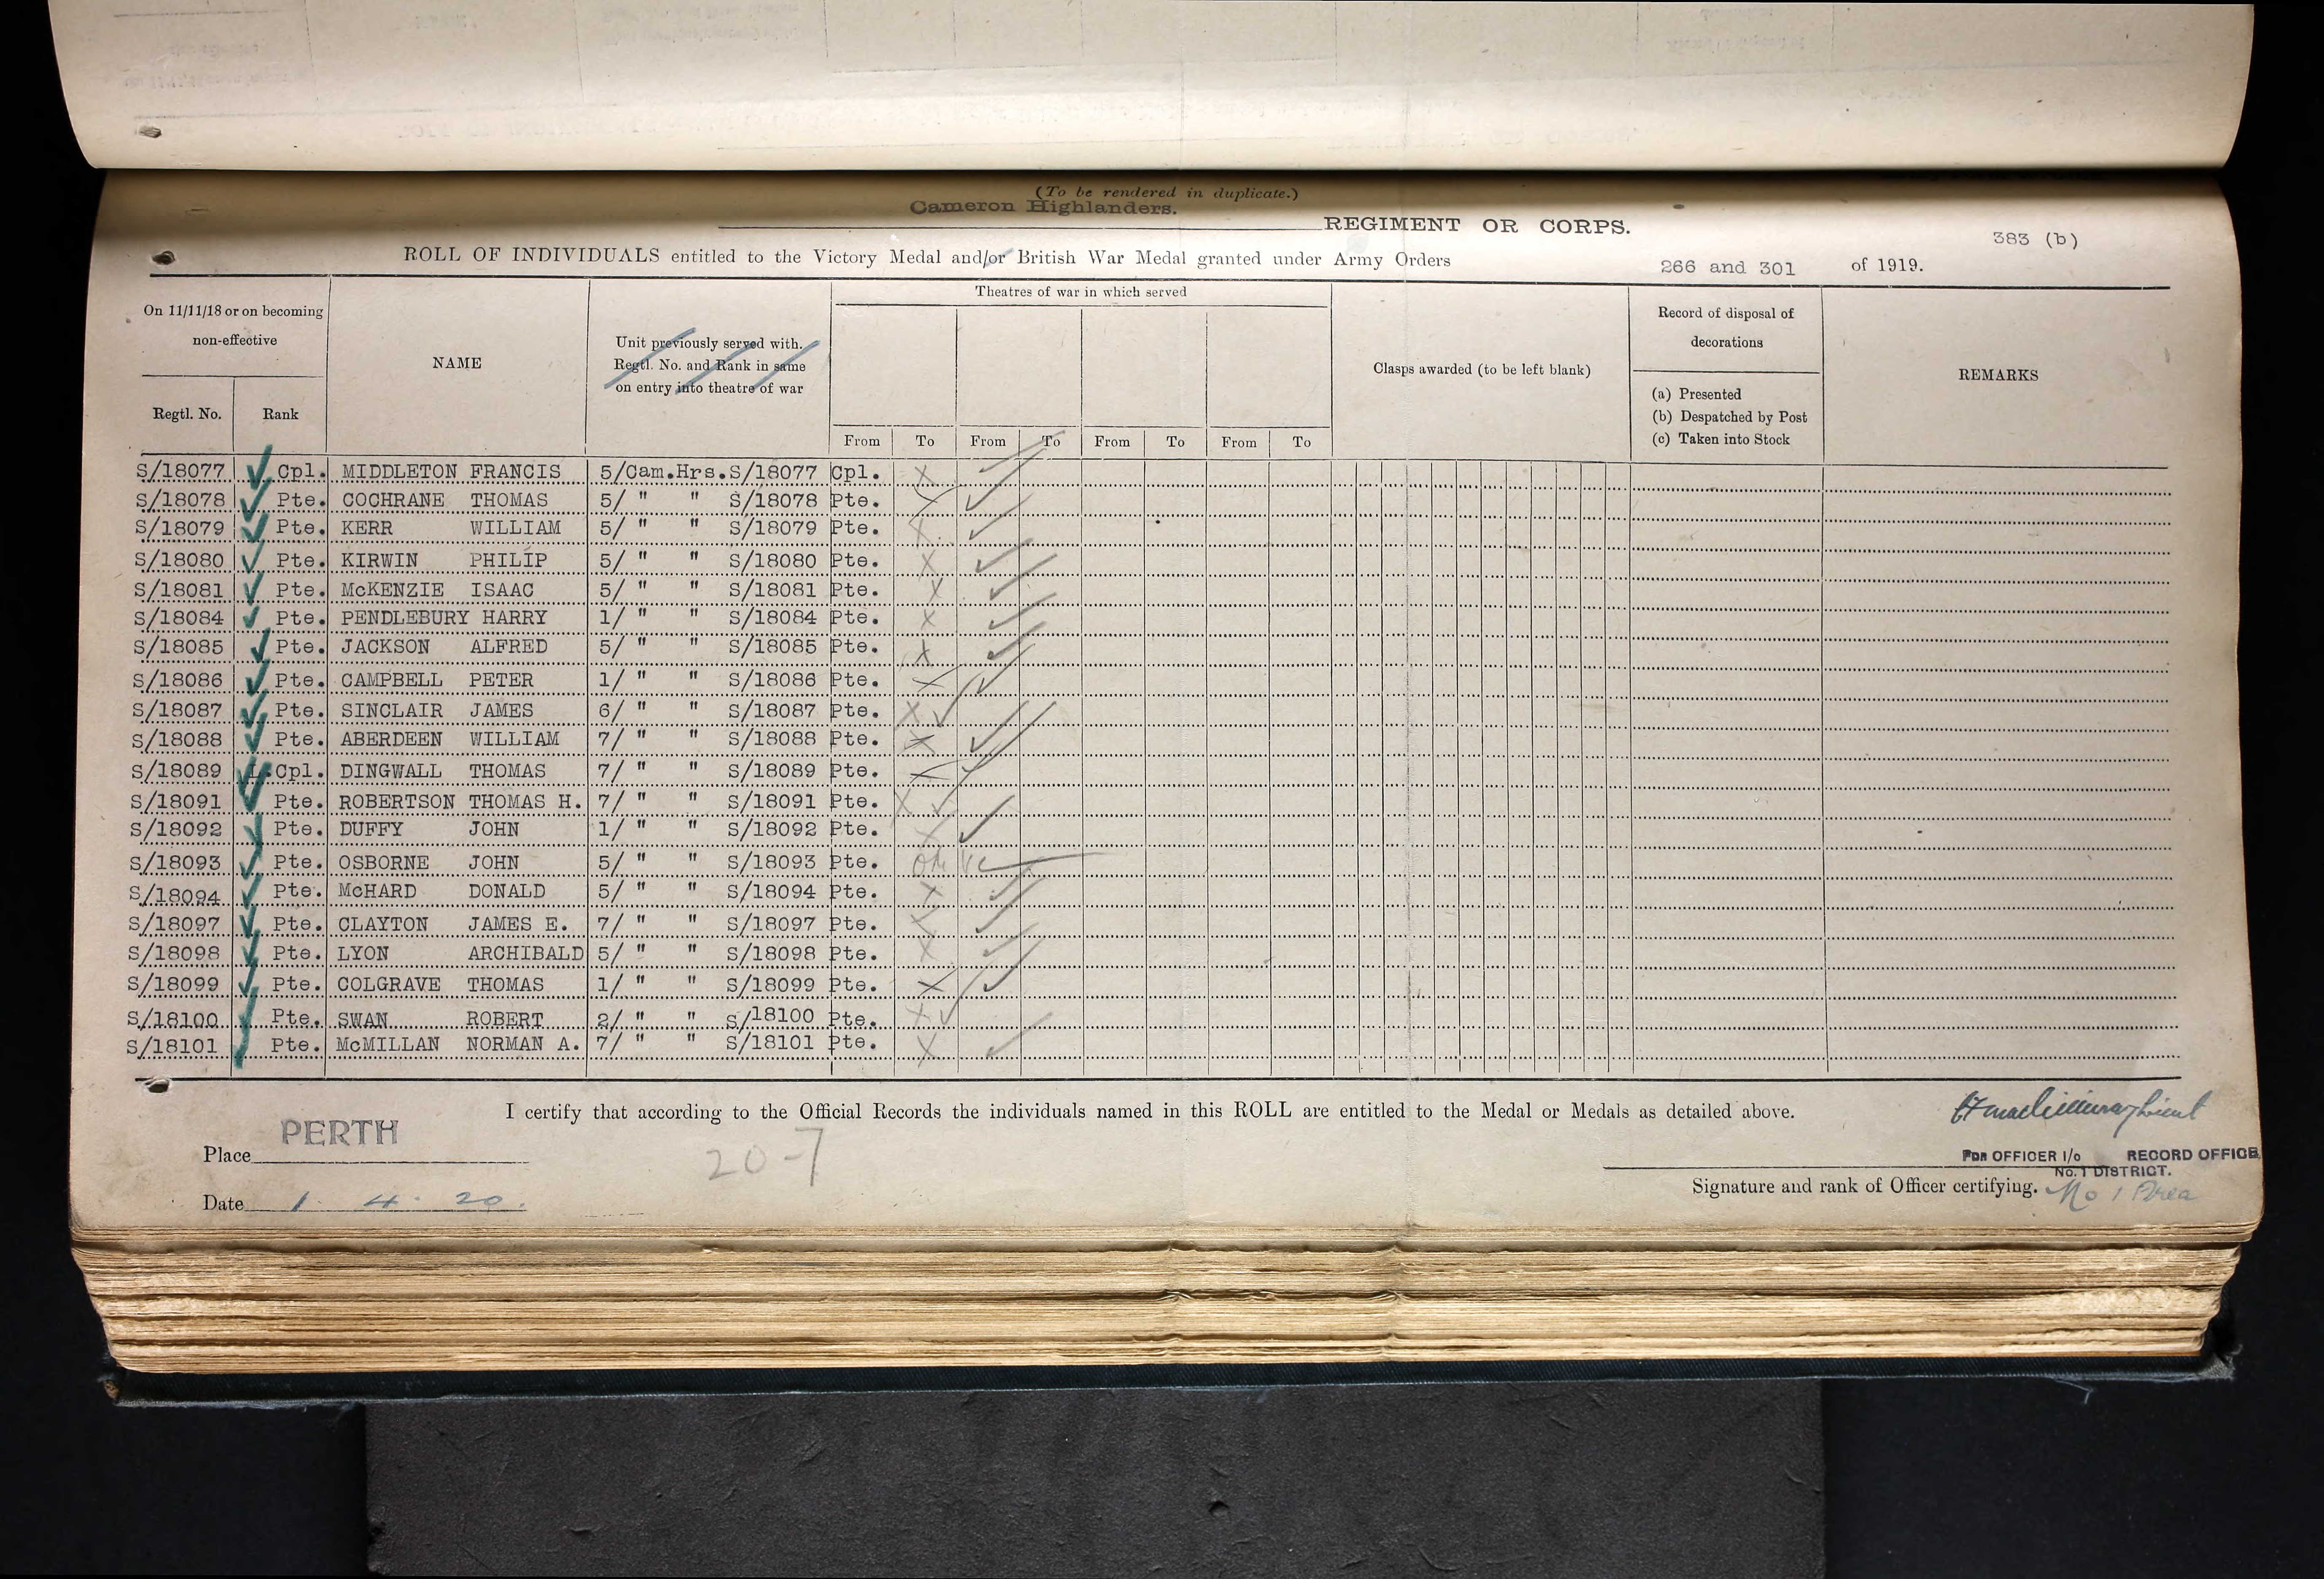 (To be rendered in duplicate.)
Cameron Highlanders.
REGIMENT OR CORPS.
383 (b)
ROLL OF INDIVIDUALS entitled to the Victory Medal and/or British War Medal granted under Army Orders 266 and 301 of 1919.
On 11/11/18 or on becoming non-effective
Regtl. No.
Rank
NAME
Unit previously served with. Regtl. No. and Rank in same on entry into theatre of war
Theatres of war in which served
From To From To From To From To
Clasps awarded (to be left blank)
Record of disposal of decorations
(a) Presented
(b) Despatched by Post
(c) Taken into Stock
REMARKS
S/18077 Cpl. MIDDLETON FRANCIS 5/Cam.Hrs. S/18077 Cpl. X
S/18078 Pte. COCHRANE THOMAS 5/ " " S/18078 Pte. X
S/18079 Pte. KERR WILLIAM 5/ " " S/18079 Pte. X
S/18080 Pte. KIRWIN PHILIP 5/ " " S/18080 Pte. X
S/18081 Pte. McKENZIE ISAAC 5/ " " S/18081 Pte. X
S/18084 Pte. PENDLEBURY HARRY 1/ " " S/18084 Pte. X
S/18085 Pte. JACKSON ALFRED 5/ " " S/18085 Pte. X
S/18086 Pte. CAMPBELL PETER 1/ " " S/18086 Pte. X
S/18087 Pte. SINCLAIR JAMES 6/ " " S/18087 Pte. X
S/18088 Pte. ABERDEEN WILLIAM 7/ " " S/18088 Pte. X
S/18089 L.Cpl. DINGWALL THOMAS 7/ " " S/18089 Pte. X
S/18091 Pte. ROBERTSON THOMAS H. 7/ " " S/18091 Pte. X
S/18092 Pte. DUFFY JOHN 1/ " " S/18092 Pte. X
S/18093 Pte. OSBORNE JOHN 5/ " " S/18093 Pte.
S/18094 Pte. McHARD DONALD 5/ " " S/18094 Pte. X
S/18097 Pte. CLAYTON JAMES E. 7/ " " S/18097 Pte. X
S/18098 Pte. LYON ARCHIBALD 5/ " " S/18098 Pte. X
S/18099 Pte. COLGRAVE THOMAS 1/ " " S/18099 Pte. X
S/18100 Pte. SWAN ROBERT 2/ " " S/18100 Pte. X
S/18101 Pte. McMILLAN NORMAN A. 7/ " " S/18101 Pte. X
I certify that according to the Official Records the individuals named in this ROLL are entitled to the Medal or Medals as detailed above.
Place PERTH
20-7
FOR OFFICER I/o RECORD OFFICE,
No. 1 DISTRICT.
Signature and rank of Officer certifying. No 1 Area
Date 1. 4. 20.